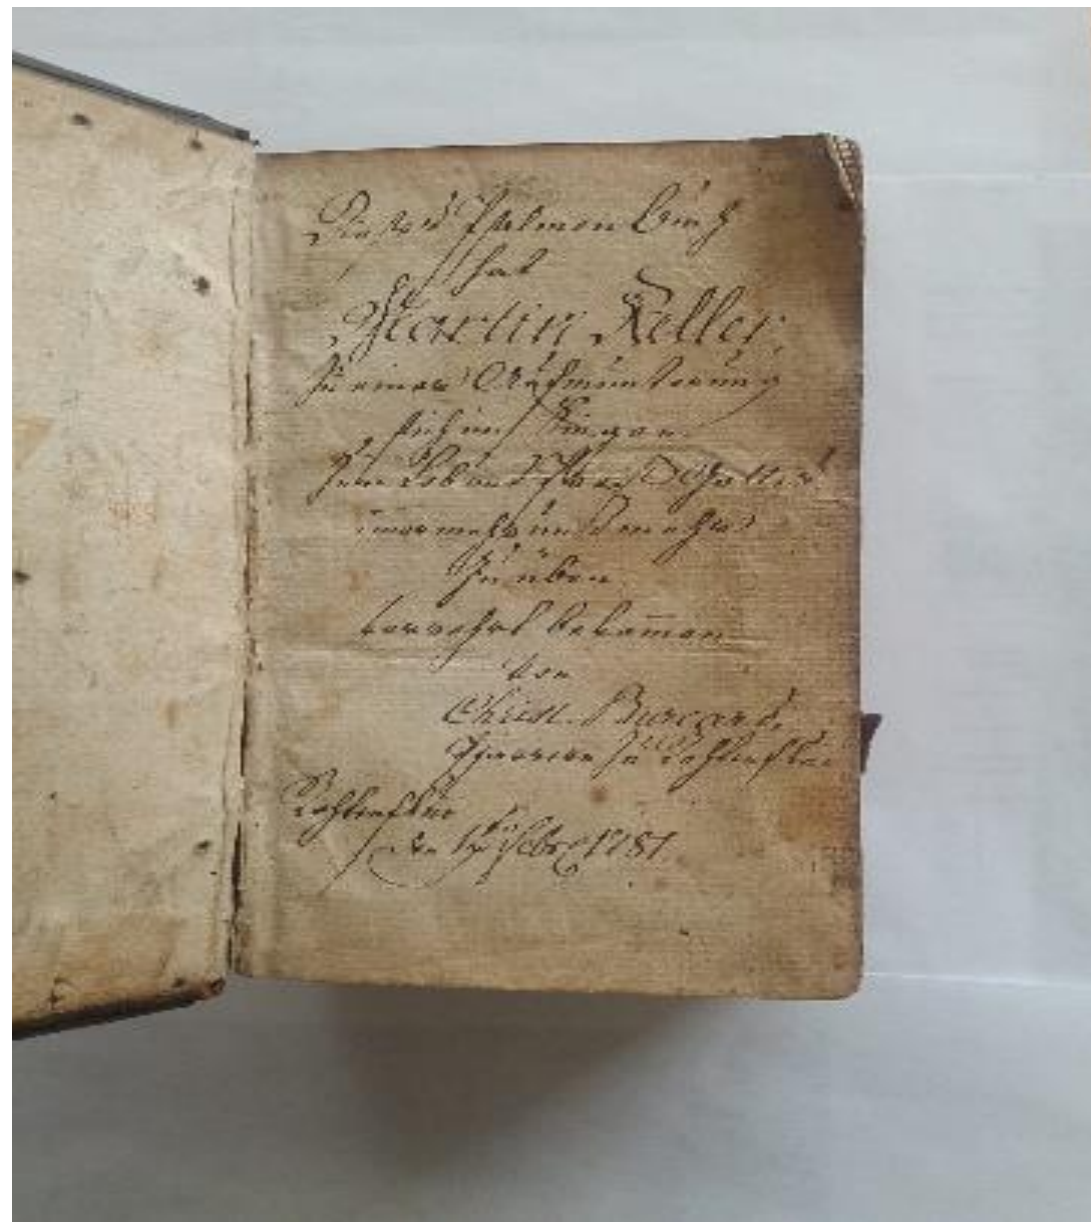 Dieses Psalmen Buch
hat
Martin Keller,
zu einer Aufmunterung
sich im Singen
zum Lob und Preis Gottes
imer mehr und mehr
zu üben
verehrt bekom̅en
von
Christ. Burcard,
Pfarrer zu
den Febr. 1781